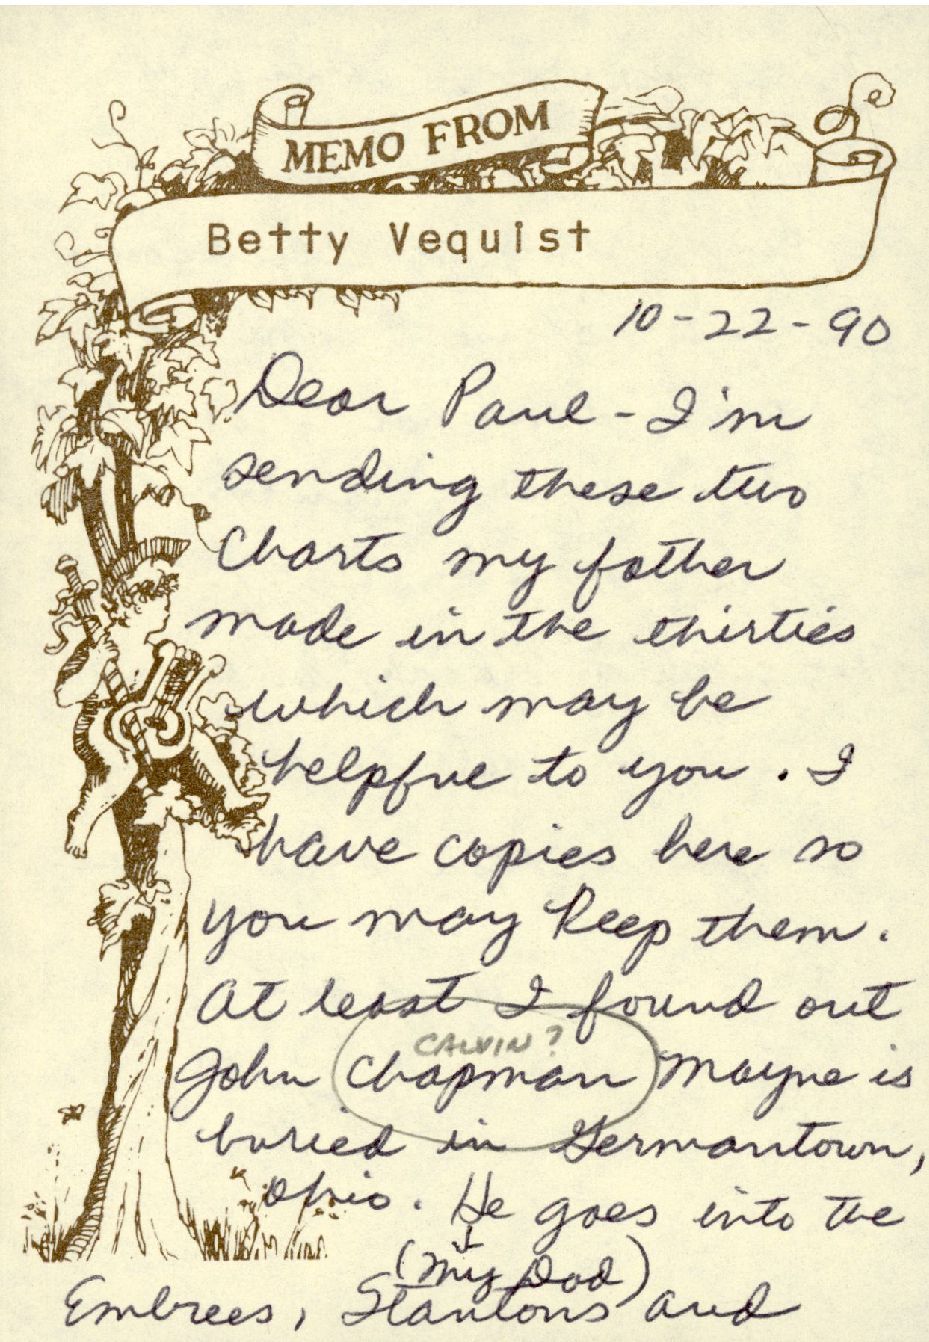 MEMO FROM
Betty Vequist
10-22-90
Dear Paul - I'm
sending these two
Charts my father
made in the thirties
which may be
helpful to you. I
have copies here so
you may keep them.
At least I found out
CALVIN?
John Chapman Mayne is
buried in Germantown,
Ohio. He goes into the
(My Dad)
Embrees, Stantons and